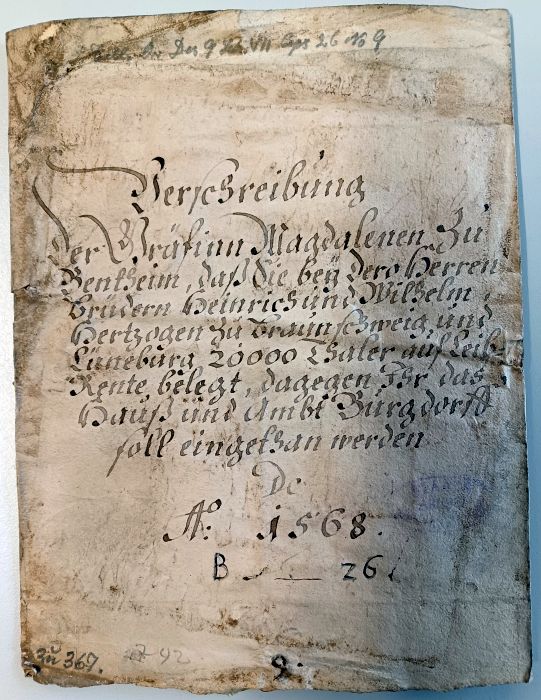 Des. 9 VII Caps 26 No 9
Verschreibung
der Gräfinn Magdalenen Zu
Bentheim, daß sie beÿ dero Herren
Brüdern Heinrich und Wilhelm,
Hertzogen Zu Braunschweig, und
Lüneburg 20000 Thaler auf Leib-
Rente belegt, dagegen Ihr das
Hauß und Ambt Burgdorff
soll eingethan werden
De
Aō. 1568.
B 26.
zu 367.
92
9.